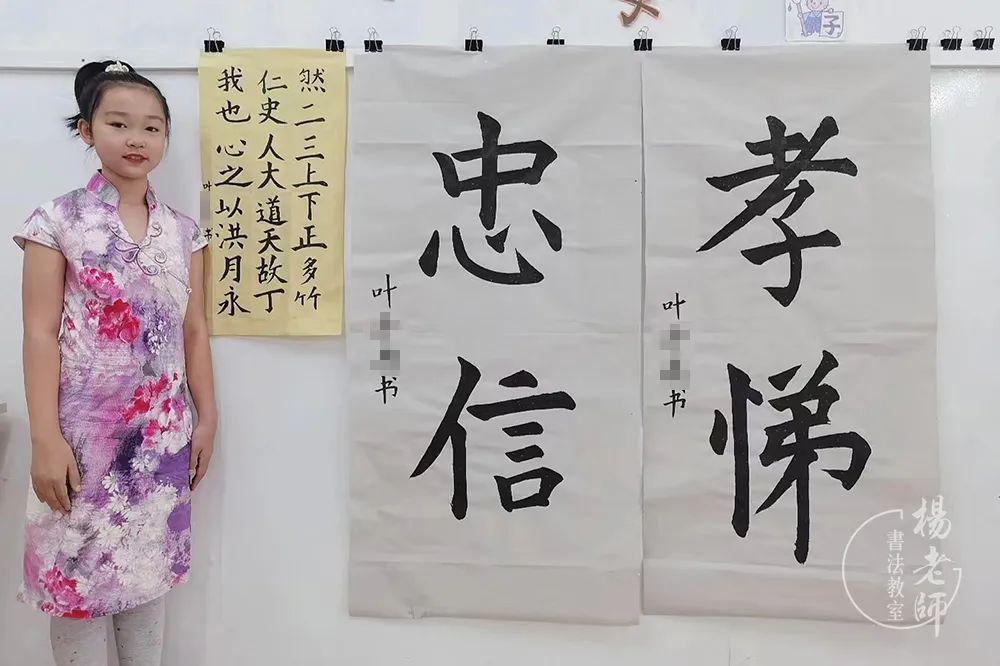 孝悌
叶
书
忠信
叶
书
然二三上下正多竹
仁史人大道天故丁
我也心之以洪月永
叶
书
子
楊老師
書法教室